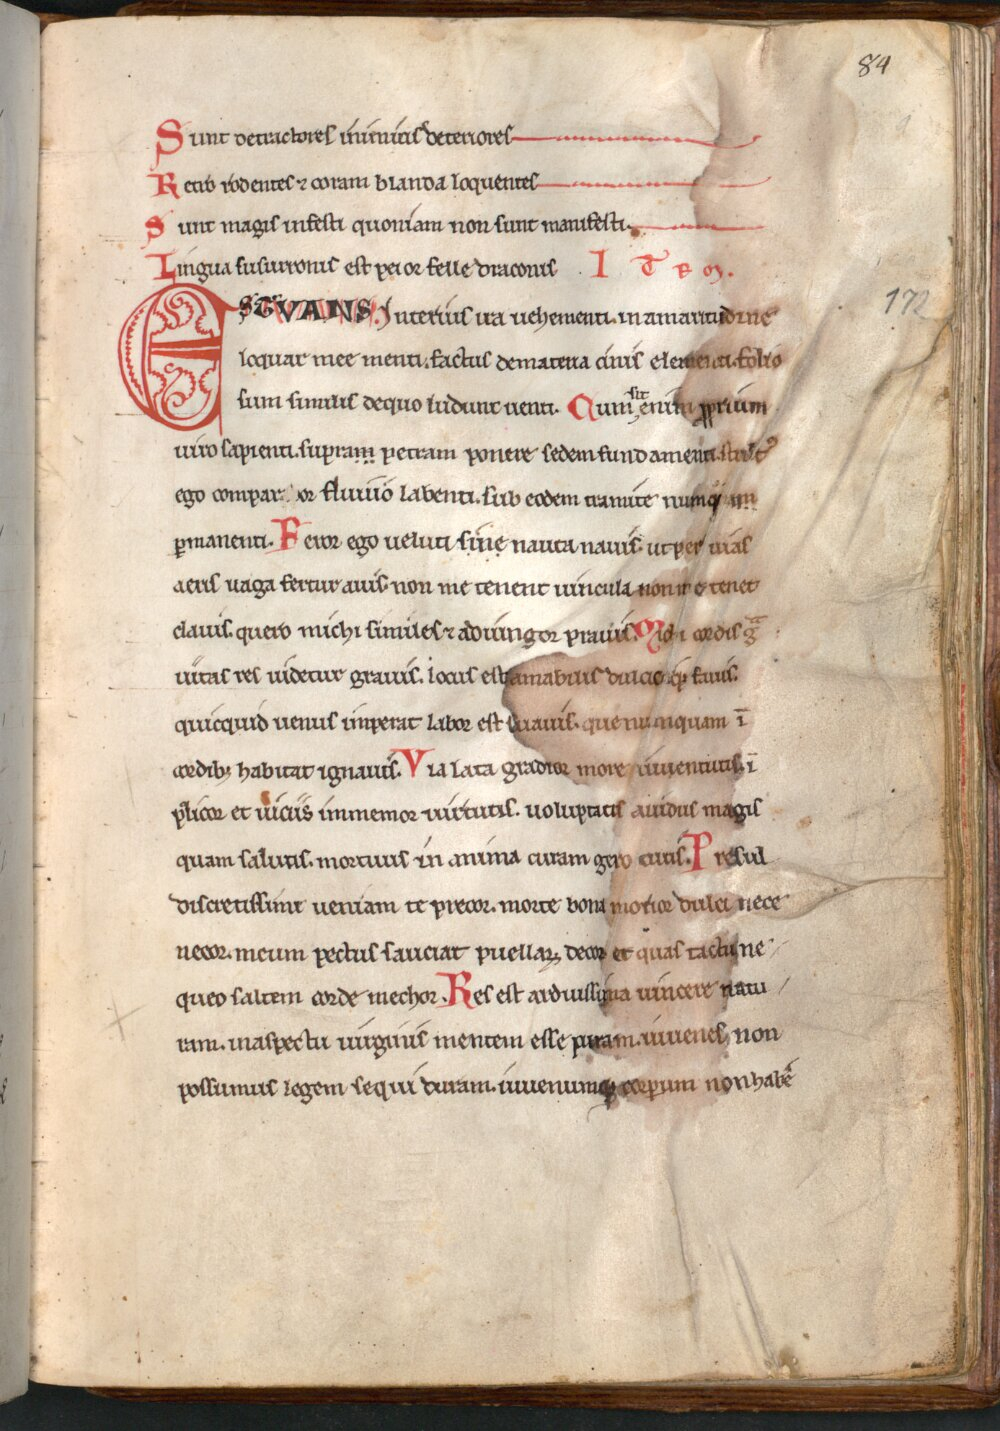 84
Sunt detractores inimicis deteriores
Retro rodentes ⁊ coram blanda loquentes
Sunt magis infesti quoniam non sunt manifesti.
Lingua susurronis est peior felle draconis I T E M.
172
ESTVANS. Interius ira uehementi. in amaritudine
loquar mee menti. factus de materia cinis elementi. folio
sum similis de quo ludunt uenti. Cum sit enim ꝓprium
uiro sapienti. supra petram ponere sedem fundamenti. stult᷒
ego comparor fluuio labenti. sub eodem tramite numquam
ꝑmanenti. Feror ego ueluti sine nauta nauis. ut per uias
aeris uaga fertur auis. non me tenent uincula non me tenet
clauis. quero michi similes ⁊ adiungor prauis. Michi cordis gͣ
uitas res uidetur grauis. locus est amabilis dulciorqꝫ fauis.
quicquid uenus imperat labor est suauis. que numquam ī
cordibꝫ habitat ignauis. Via lata gradior more iuuentutis. ī
plicor et uiciis immemor uirtutis. uoluptatis auidus magis
quam salutis. mortuus in anima curam gero cutis. Presul
discretissime ueniam te precor. morte bona morior dulci nece
necor. meum pectus sauciat puellarꝫ decor et quas tactu ne
queo saltem corde mechor. Res est arduissima uincere natu
ram. in aspectu uirginis mentem esse puram. iuuenes non
possumus legem sequi duram. iuuenumqꝫ corporum non habe᷑